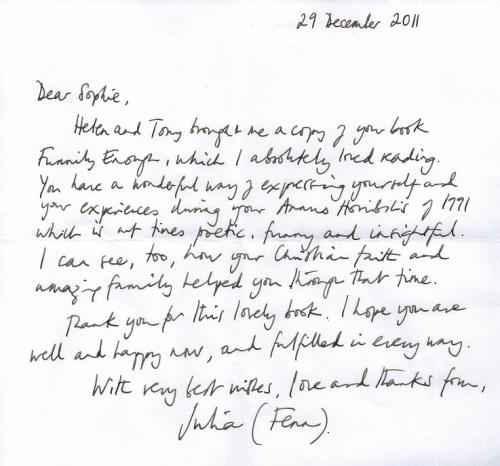 29 December 2011
Dear Sophie,
Helen and Tony brought me a copy of your book
Funnily Enough, which I absolutely loved reading.
You have a wonderful way of expressing yourself and
your experiences during your Annus Horribilis of 1991
which is at times poetic, funny and insightful.
I can see, too, how your Christian faith and
amazing family helped you through that time.
Thank you for this lovely book. I hope you are
well and happy now, and fulfilled in every way.
With very best wishes, love and thanks from,
Julia (Fenn).